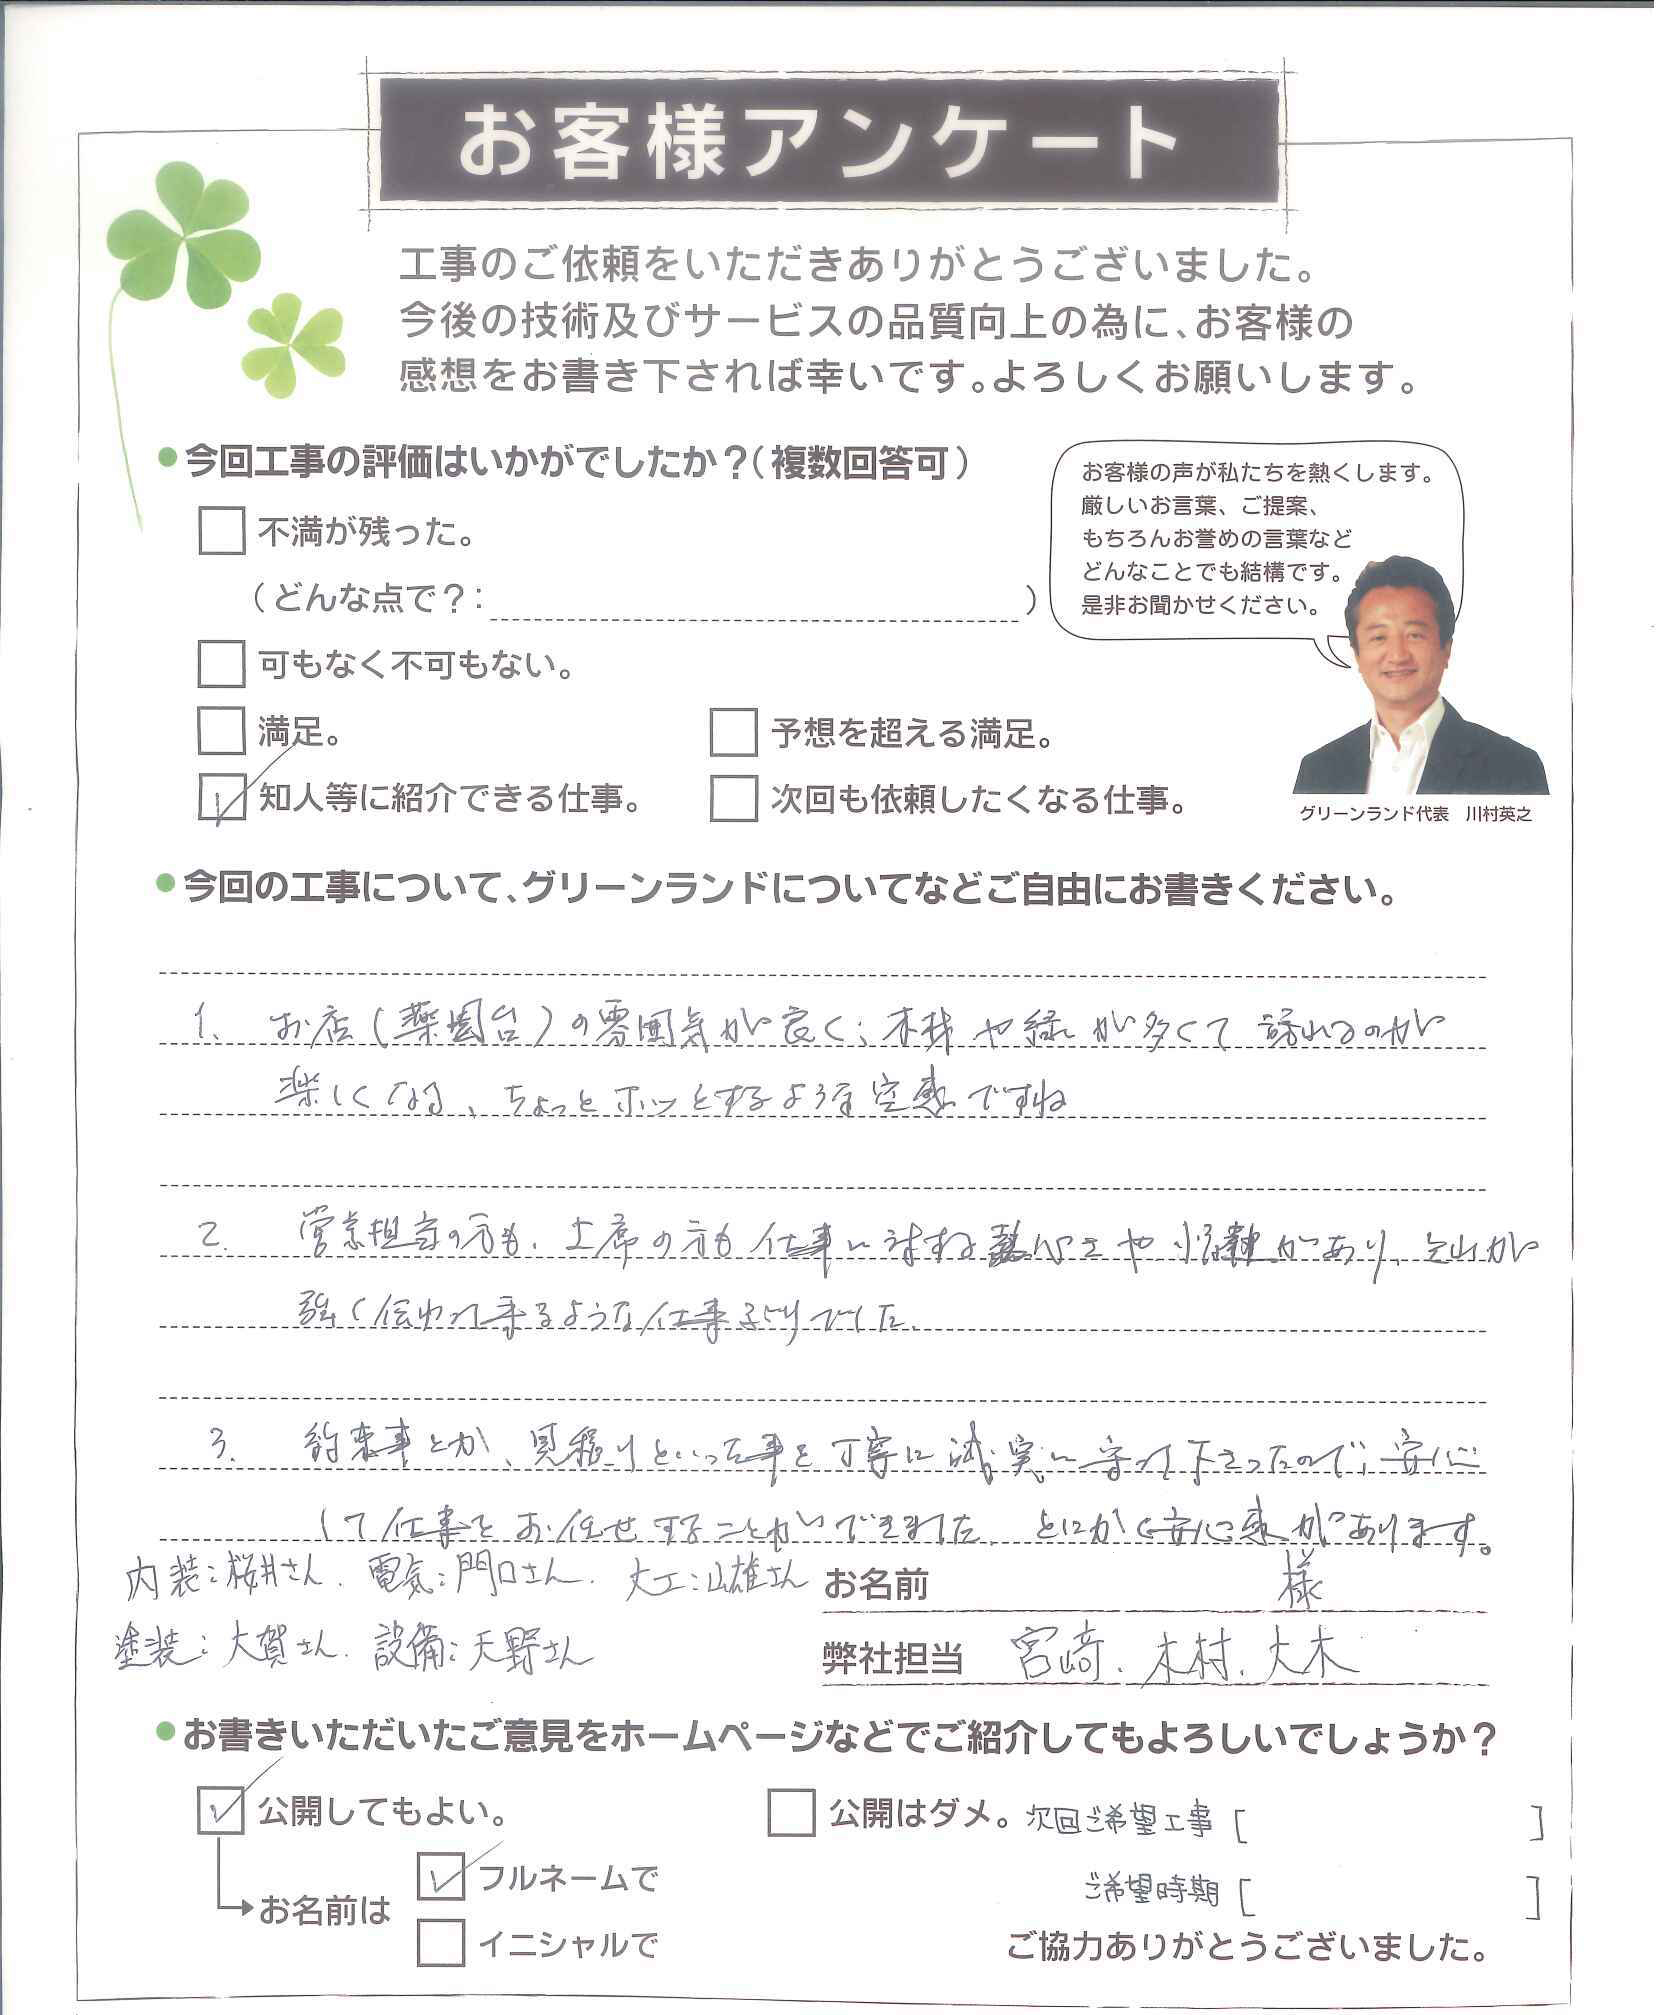 お客様アンケート
工事のご依頼をいただきありがとうございました。
今後の技術及びサービスの品質向上の為に、お客様の
感想をお書き下されば幸いです。よろしくお願いします。
●今回工事の評価はいかがでしたか？（複数回答可）
不満が残った。
（どんな点で？：　）
可もなく不可もない。
満足。
予想を超える満足。
知人等に紹介できる仕事。
次回も依頼したくなる仕事。
お客様の声が私たちを熱くします。
厳しいお言葉、ご提案、
もちろんお誉めの言葉など
どんなことでも結構です。
是非お聞かせください。
グリーンランド代表　川村英之
●今回の工事について、グリーンランドについてなどご自由にお書きください。
1. お店（薬園台）の雰囲気が良く、木材や緑が多くて訪れるのが
楽しくなる、ちょっとホッとするような空感ですね
2. 営業担当の方も、工席の方も仕事に対する熱心さや があり、 が
強く伝わって来るような仕事ぶりでした。
3. 約束事とか、見積りといった事を丁寧に誠実に守って下さったので、安心
して仕事をお任せすることができました。とにかく安心感があります。
内装：桜井さん、電気：門口さん、大工：山雄さん
塗装：大賀さん、設備：天野さん
お名前　様
弊社担当　宮崎、木村、大木
●お書きいただいたご意見をホームページなどでご紹介してもよろしいでしょうか？
公開してもよい。
公開はダメ。
次回ご希望工事［　］
お名前は
フルネームで
イニシャルで
ご希望時期［　］
ご協力ありがとうございました。